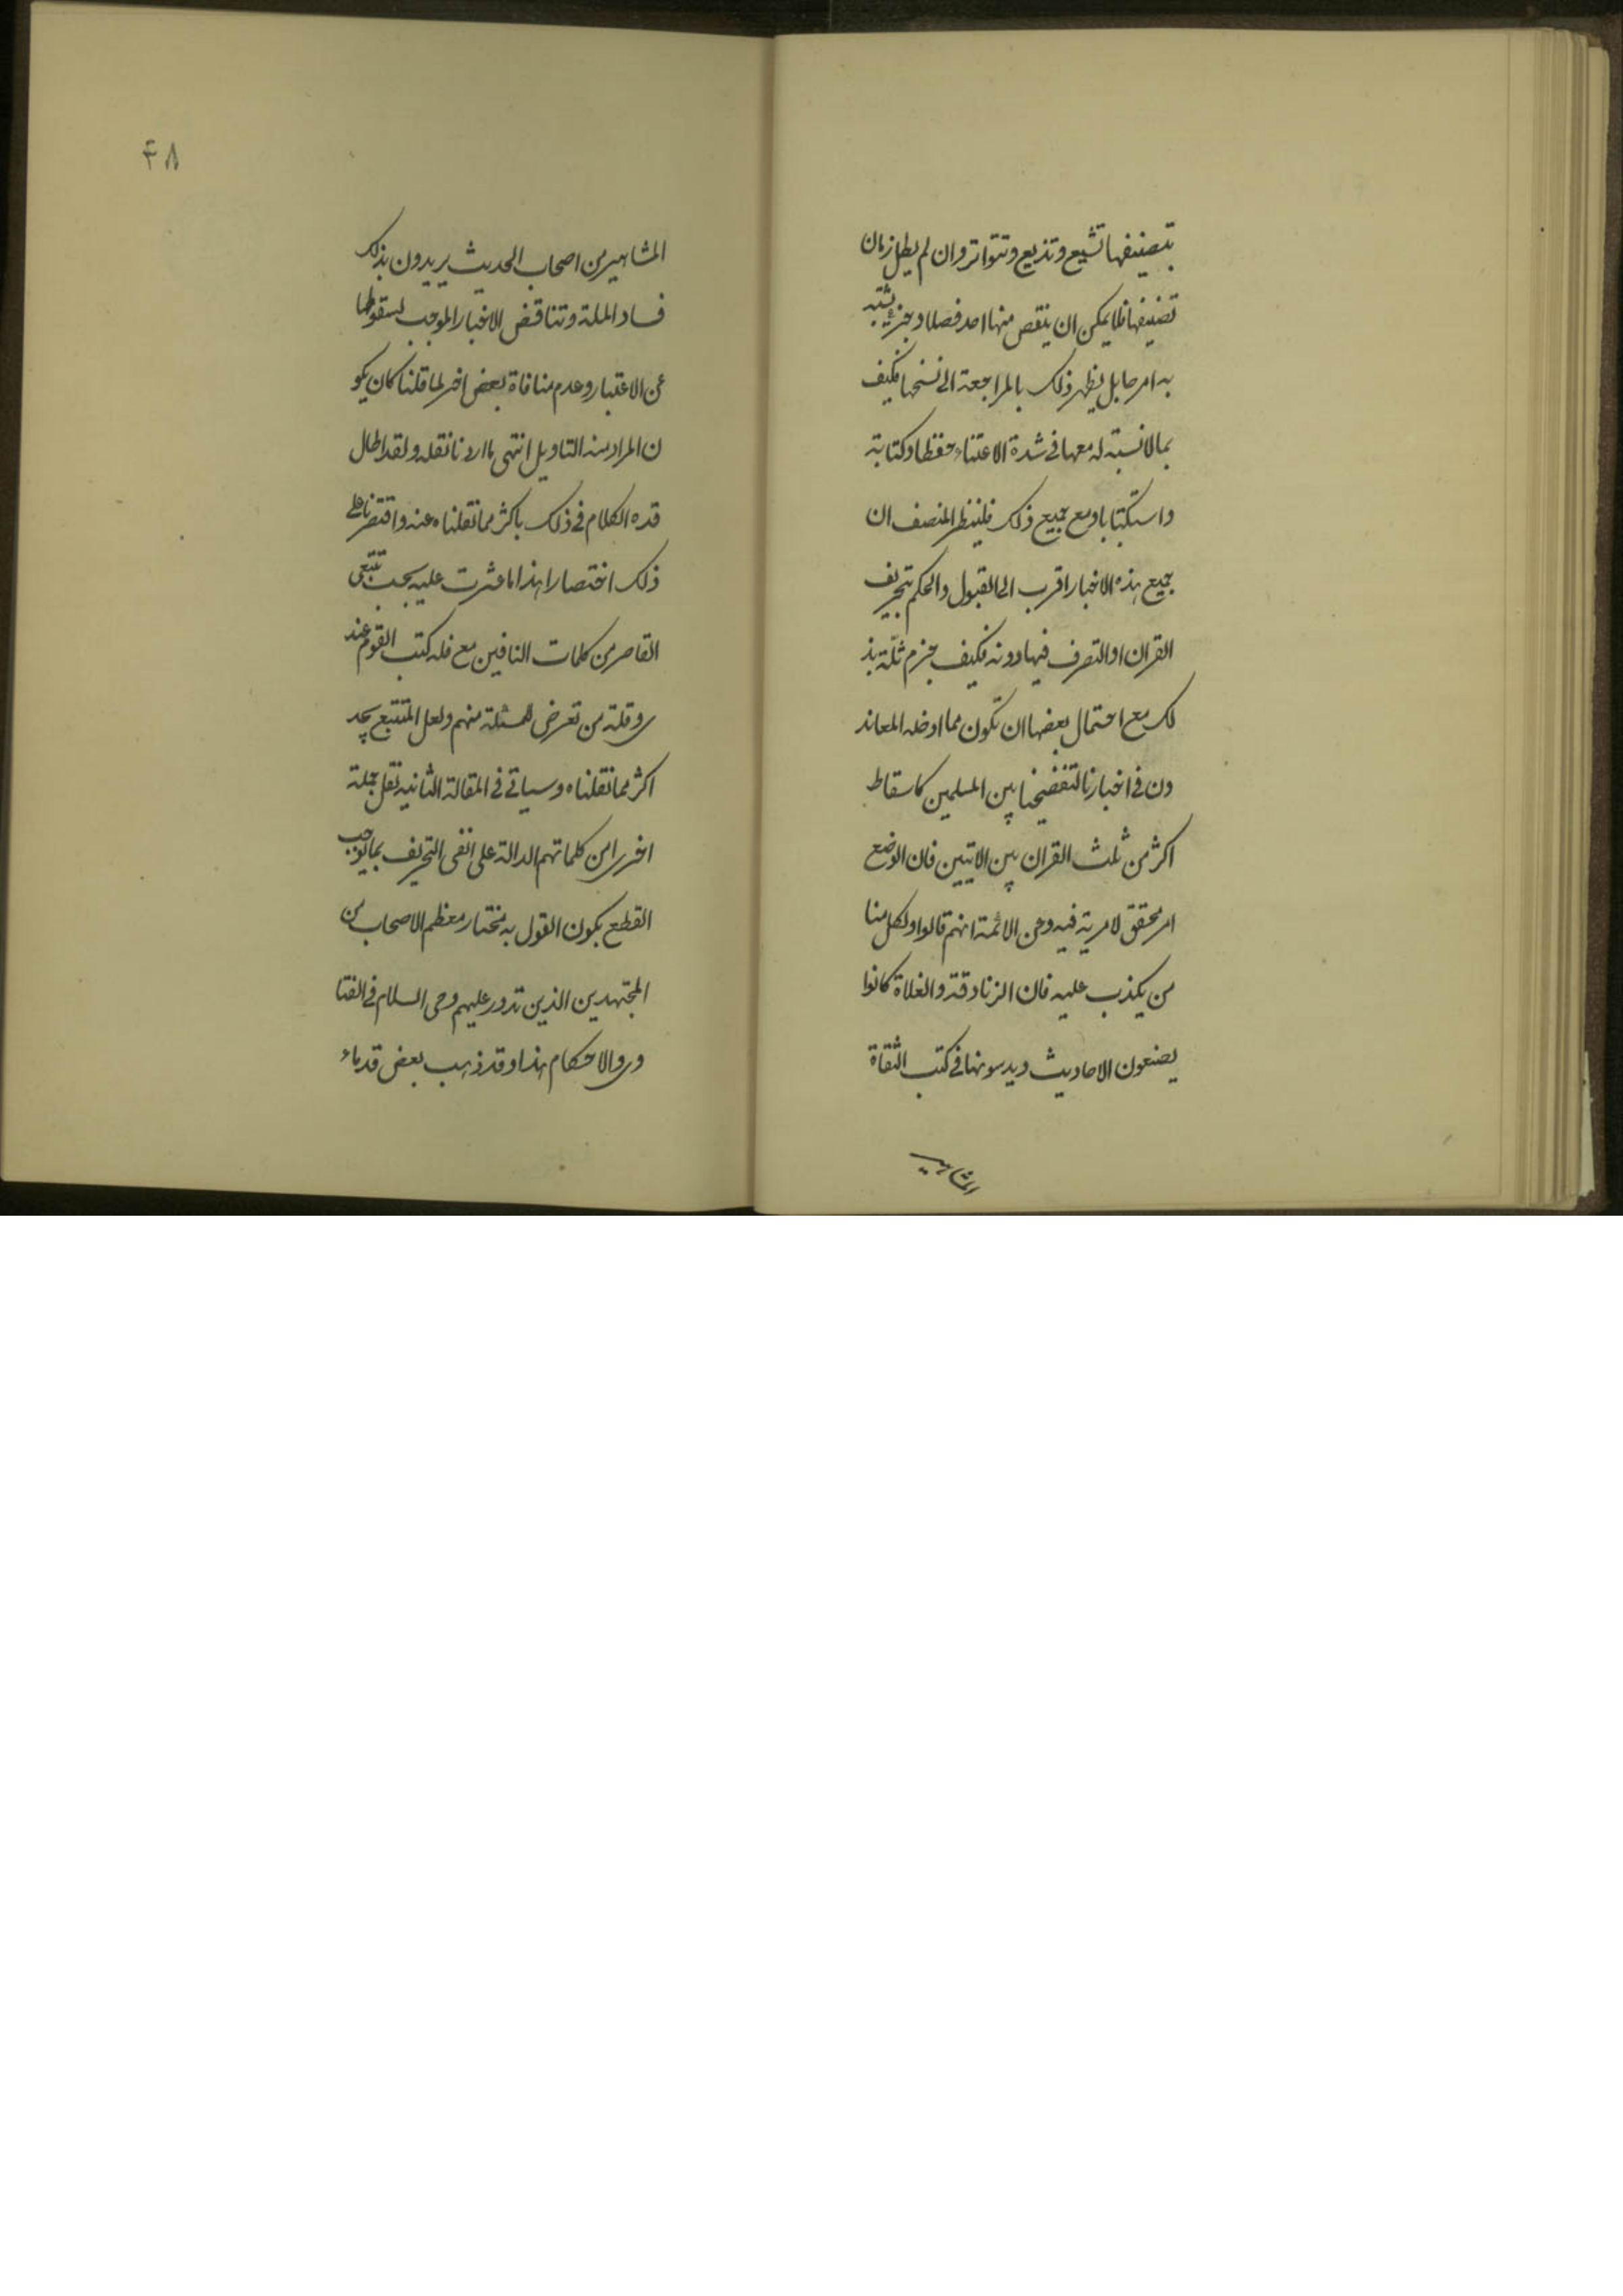 بتصنيفها تشيع وتذيع وتتواتر وان لم يطل زمان
تصنيفها فلا يمكن ان ينقص منها احد فصلا او جزء يشتبه
به امرها بل يظهر ذلك بالمراجعة الى نسخها فكيف
بما لا نسبة له معها فى شدة الاعتناء حفظا وكتابة
واستكتابا ومع جميع ذلك فلينظر المنصف ان
جميع هذه الاخبار اقرب الى القبول والحكم بتحريف
القران او التصرف فيها دونه فكيف جزم ثلّة بذ
لك مع احتمال بعضها ان تكون مما ادخله المعاند
ون فى اخبارنا لتفضيحنا بين المسلمين كاسقاط
اكثر من ثلث القران بين الايتين فان الوضع
امر محقق لا مرية فيه وعن الائمة انهم قالوا ولكل منا
من يكذب عليه فان الزنادقة والغلاة كانوا
يضعون الاحاديث ويدسونها فى كتب الثقاة
المشاهير
٤٨
المشاهير من اصحاب الحديث يريدون بذلك
فساد الملة وتناقض الاخبار الموجب لسقوطها
عن الاعتبار وعدم منافاة بعض اخر لما قلنا كان يكو
ن المراد منه التاويل انتهى ما اردنا نقله ولقد اطال
قده الكلام فى ذلك باكثر مما نقلناه عنه واقتصرنا على
ذلك اختصارا هذا ما عثرت عليه بحسب تتبعى
القاصر من كلمات النافين مع قلة كتب القوم عند
ى وقلة من تعرض للمسئلة منهم ولعل المتتبع يجد
اكثر مما نقلناه وسياتى فى المقالة الثانية نقل جملة
اخرى من كلماتهم الدالة على نفى التحريف بما يوجب
القطع بكون القول به مختار معظم الاصحاب من
المجتهدين الذين تدور عليهم وحى السلام فى الفتا
وى والاحكام هذا وقد ذهب بعض قدماء